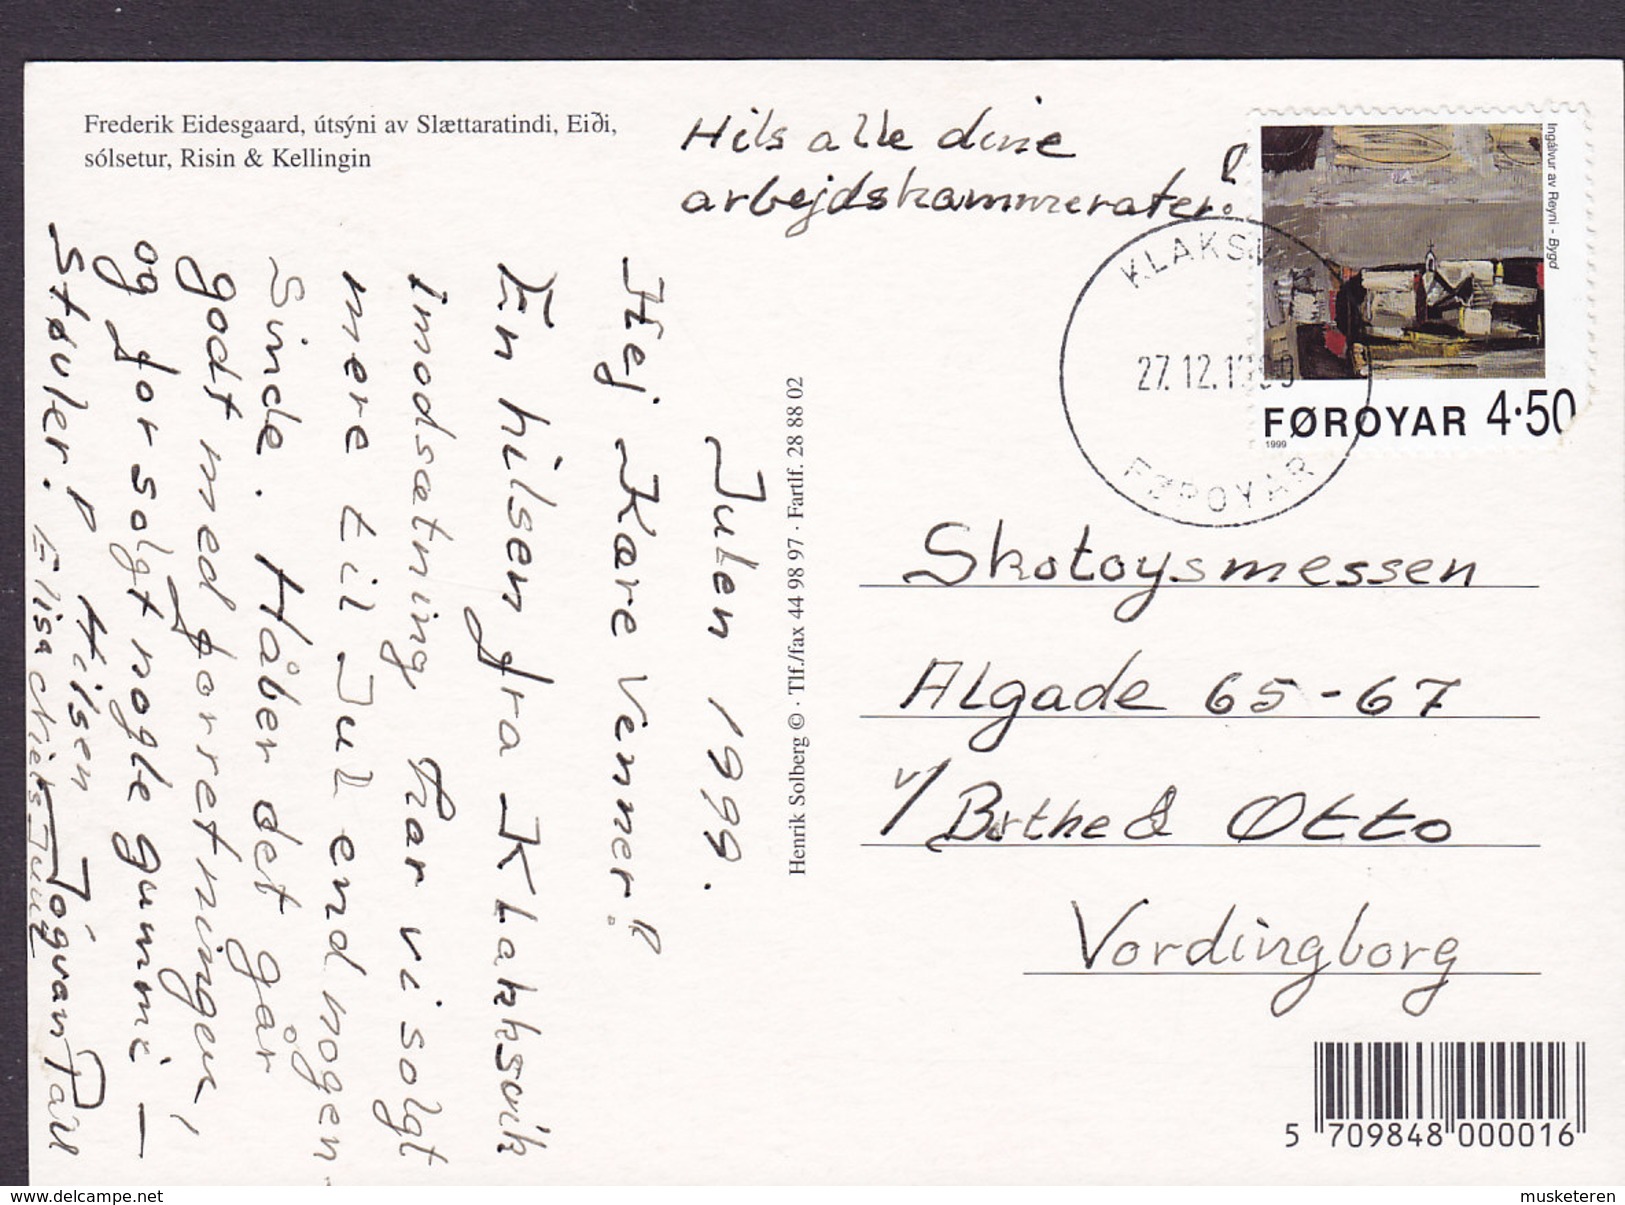 Frederik Eidesgaard, útsýni av Slættaratindi, Eiði,
sólsetur, Risin & Kellingin
Hils alle dine
arbejdskammerater!
Julen 1999.
Hej Kære Venner!
En hilsen fra Klaksvik
imodsætning har vi solgt
mere til Jul end nogen-
Sinde. Håber det går
godt med forretningen,
og for solgt nogle gummi-
Støvler! Hilsen Jógvan Páll
Elisa
Henrik Solberg © · Tlf./fax 44 98 97 · Fartlf. 28 88 02
Ingálvur av Reyni - Bygd
FØROYAR 4·50
1999
KLAKSV
27.12.1999
FØROYAR
Skotoysmessen
Algade 65-67
v/ Birthe & Otto
Vordingborg
5 709848 000016
www.delcampe.net
musketeren